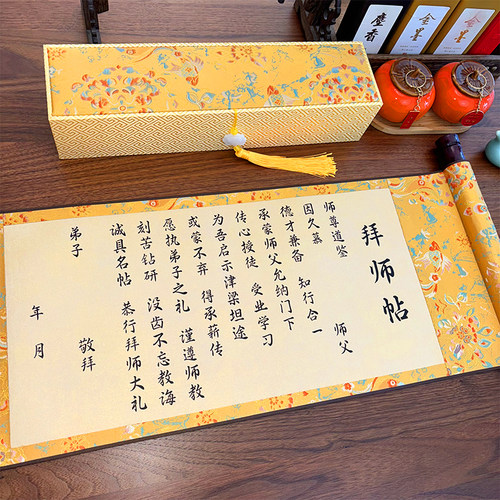 拜师帖
师尊道鉴 师父
因久慕
德才兼备 知行合一
承蒙师父允纳门下
传心授徒 受业学习
为吾启示津梁坦途
或蒙不弃 得承薪传
愿执弟子之礼 谨遵师教
刻苦钻研 没齿不忘教诲
诚具名帖 恭行拜师大礼
弟子 敬拜
年 月
金墨
金墨